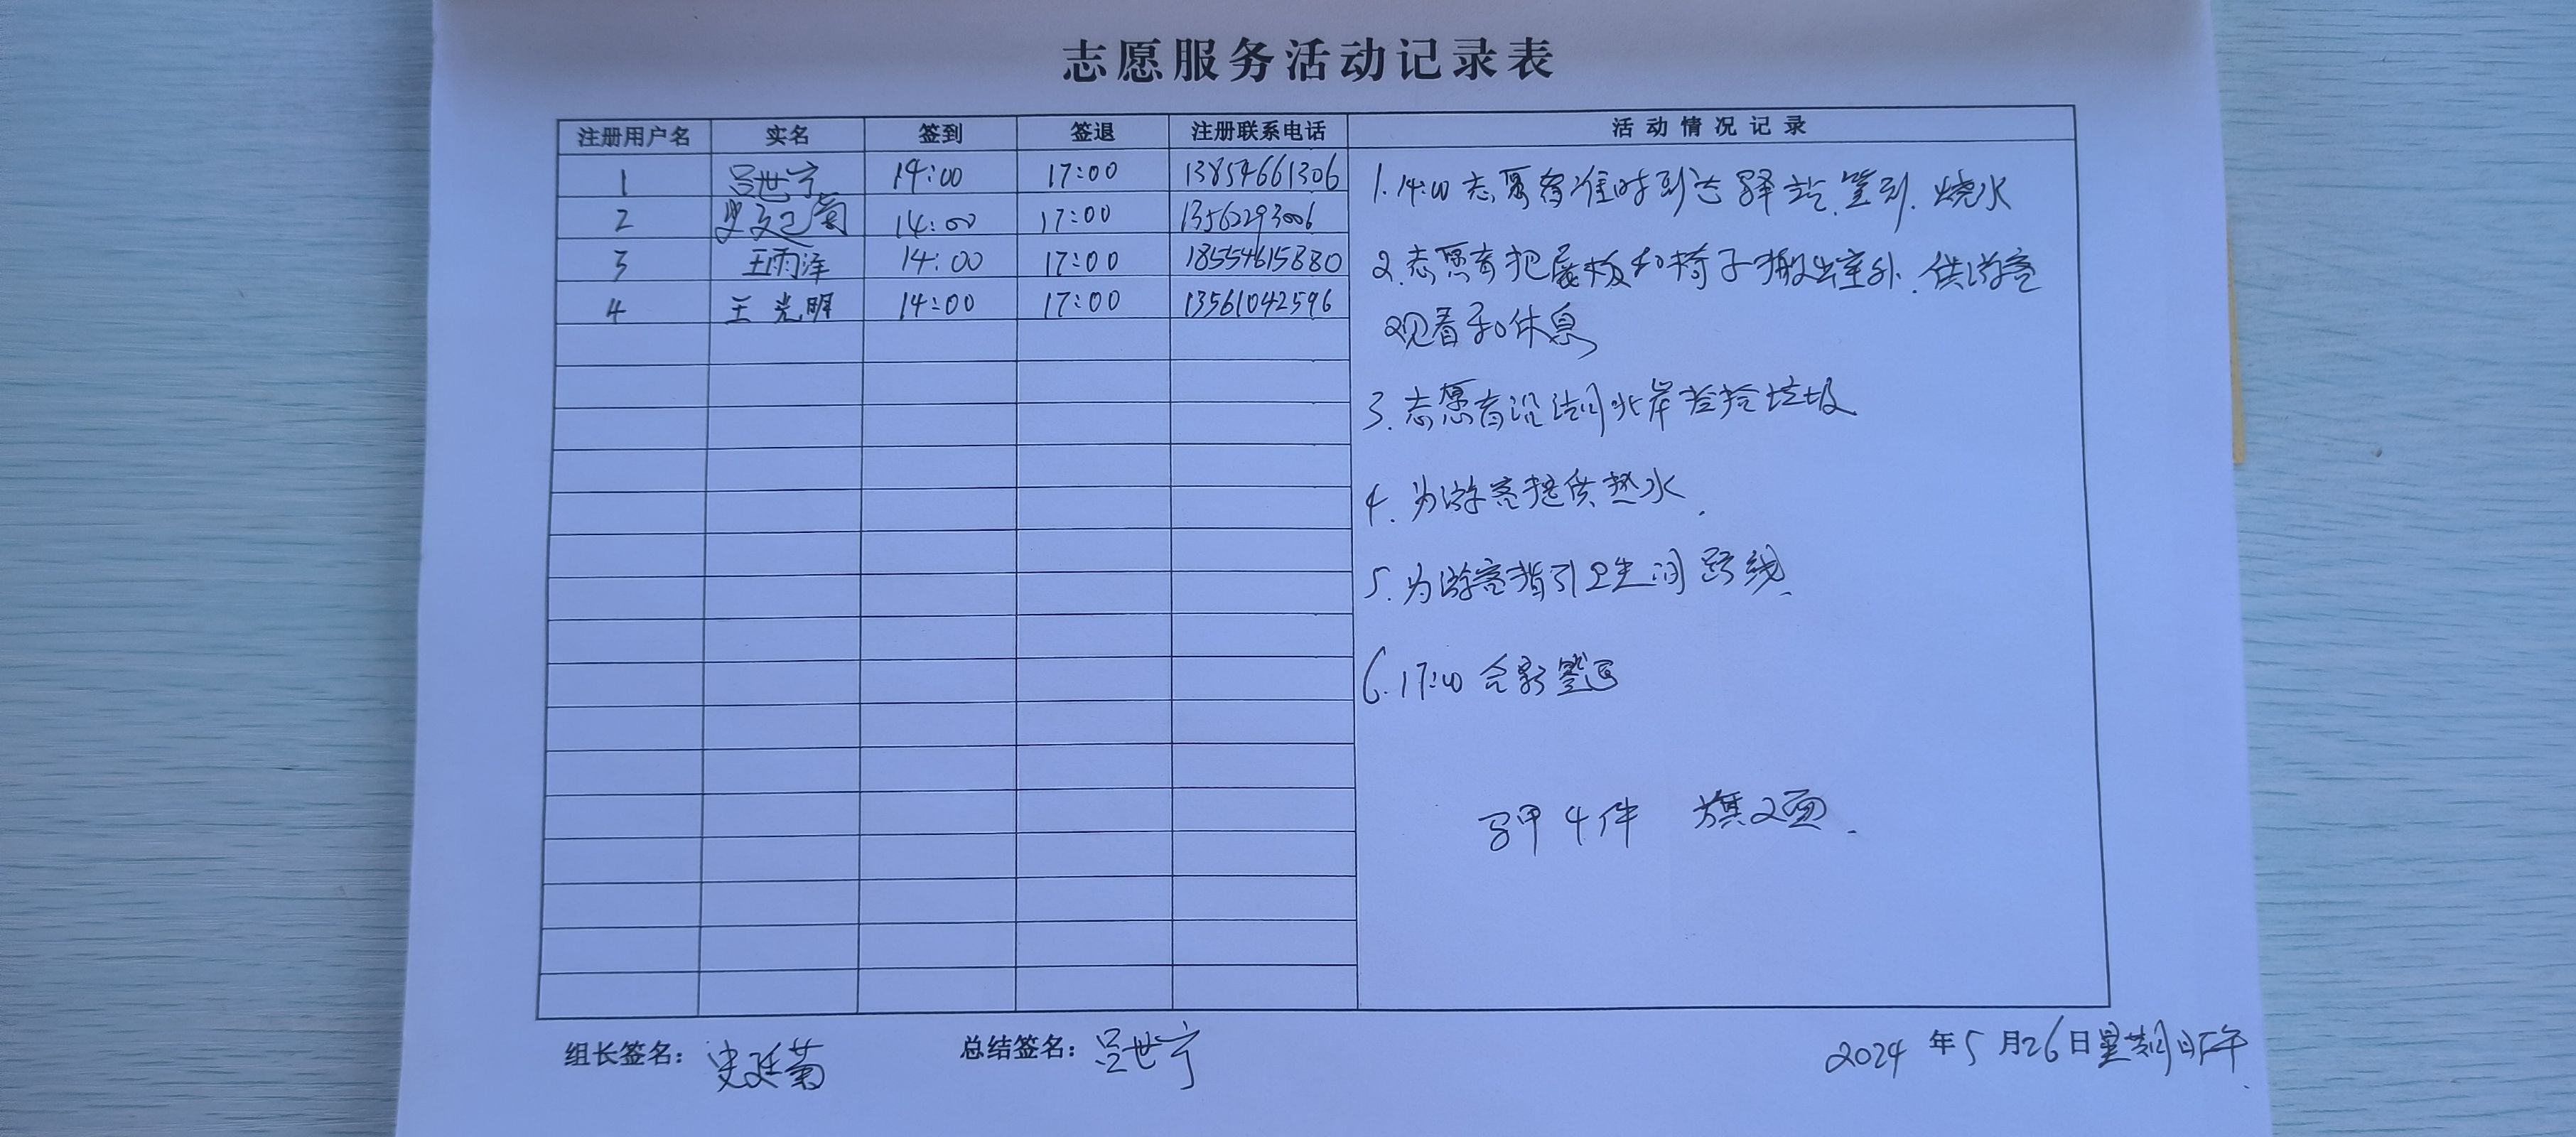 志愿服务活动记录表
注册用户名 实名 签到 签退 注册联系电话 活动情况记录
1 吕世宁 14:00 17:00 13854661306
2 14:00 17:00 13562293006
3 王雨泽 14:00 17:00 18554615880
4 王光明 14:00 17:00 13561042596
1. 14:00 志愿者准时到达驿站.签到.烧水
2. 志愿者把展板和椅子搬出室外.供游客
观看和休息
3. 志愿者沿河北岸捡拾垃圾
4. 为游客提供热水.
5. 为游客指引卫生间路线.
6. 17:00 合影签退
马甲4件 旗2面.
组长签名: 史廷菊 总结签名: 吕世宁 2024年5月26日星期日下午.